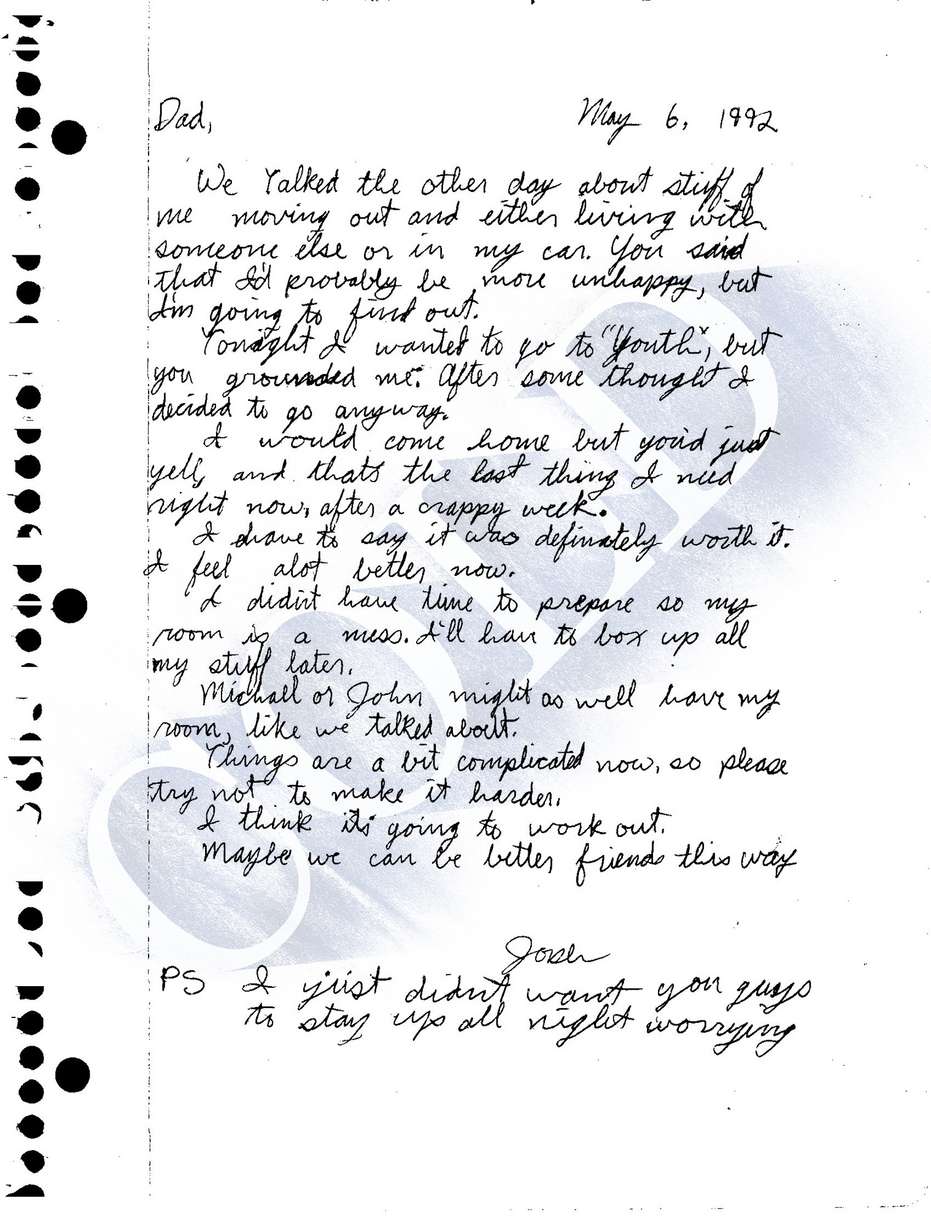 Dad, May 6, 1992
We Talked the other day about stuff of
me moving out and either living with
someone else or in my car. You said
that I'd probably be more unhappy, but
I'm going to find out.
Tonight I wanted to go to "Youth", but
you grounded me. After some thought I
decided to go anyway.
I would come home but you'd just
yell, and thats the last thing I need
right now, after a crappy week.
I have to say it was definately worth it.
I feel alot better now.
I didn't have time to prepare so my
room is a mess. I'll have to box up all
my stuff later.
Michall or John might as well have my
room, like we talked about.
Things are a bit complicated now, so please
try not to make it harder.
I think its going to work out.
Maybe we can be better friends this way
Josh
PS I just didn't want you guys
to stay up all night worrying
COLD